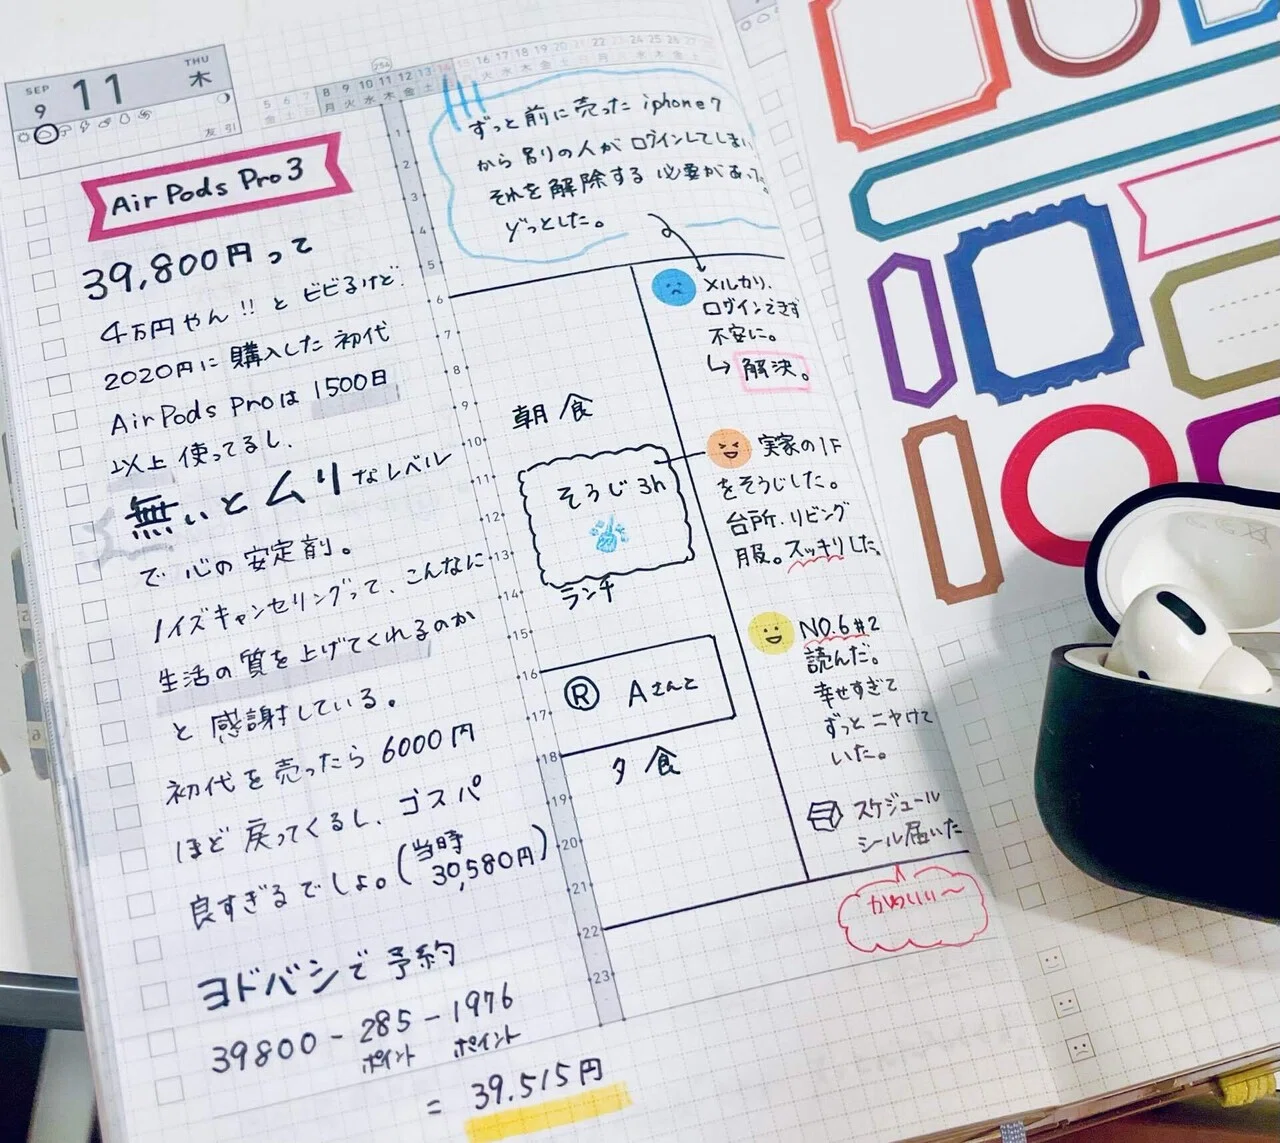 SEP
9
11
THU
木
友引
254
5 6 7 8 9 10 11 12 13 14 15 16 17 18 19 20 21 22 23 24 25 26 27
金 土 日 月 火 水 木 金 土 日 月 火 水 木 金 土 日 月 火 水 木 金 土
AirPods Pro3
39,800円って
4万円やん!!とビビるけど
2020円に購入した初代
AirPods Proは1500日
以上使ってるし、
無いとムリなレベル
で心の安定剤。
ノイズキャンセリングって、こんなに
生活の質を上げてくれるのか
と感謝している。
初代を売ったら6000円
ほど戻ってくるし、コスパ
良すぎるでしょ。(当時
30,580円)
ヨドバシで予約
39800-285-1976
ポイント ポイント
=39.515円
ずっと前に売ったiphone7
から別の人がログインしてしまい
それを解除する必要があった。
ゾっとした。
1
2
3
4
5
6
7
8
9
10
11
12
13
14
15
16
17
18
19
20
21
22
23
朝食
そうじ3h
ランチ
Ⓡ Aさんと
夕食
メルカリ、
ログインできず
不安に。
↳解決。
実家の1F
をそうじした。
台所.リビング
服。スッキリした。
NO.6#2
読んだ。
幸せすぎて
ずっとニヤけて
いた。
スケジュール
シール届いた
かわいい〜